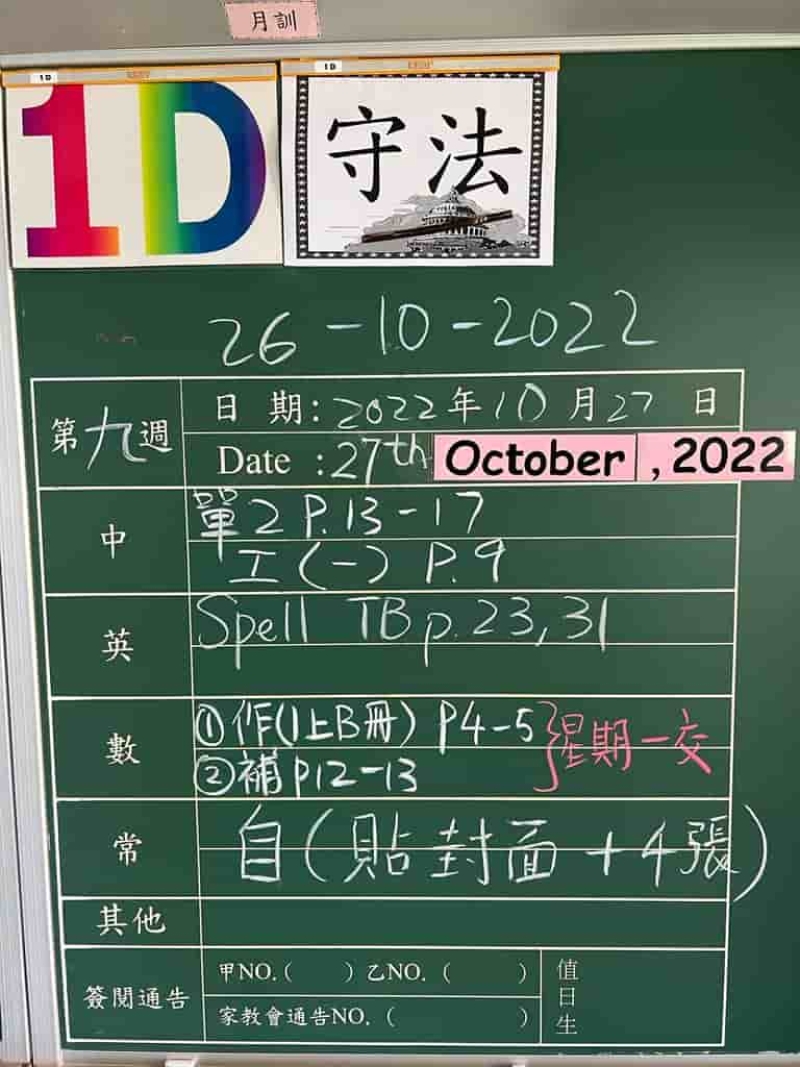 月訓
1D
1D
1D 守法
26-10-2022
第九週
日 期：2022年10月27 日
Date :27th October ,2022
中
單2 P.13-17
工(一) P.9
英
Spell TB p.23,31
數
①作(1上B冊) P4-5
②補 P12-13
星期一交
常
自(貼封面+4張)
其他
簽閱通告
甲NO.( ) 乙NO. ( )
家教會通告NO. ( )
值日生